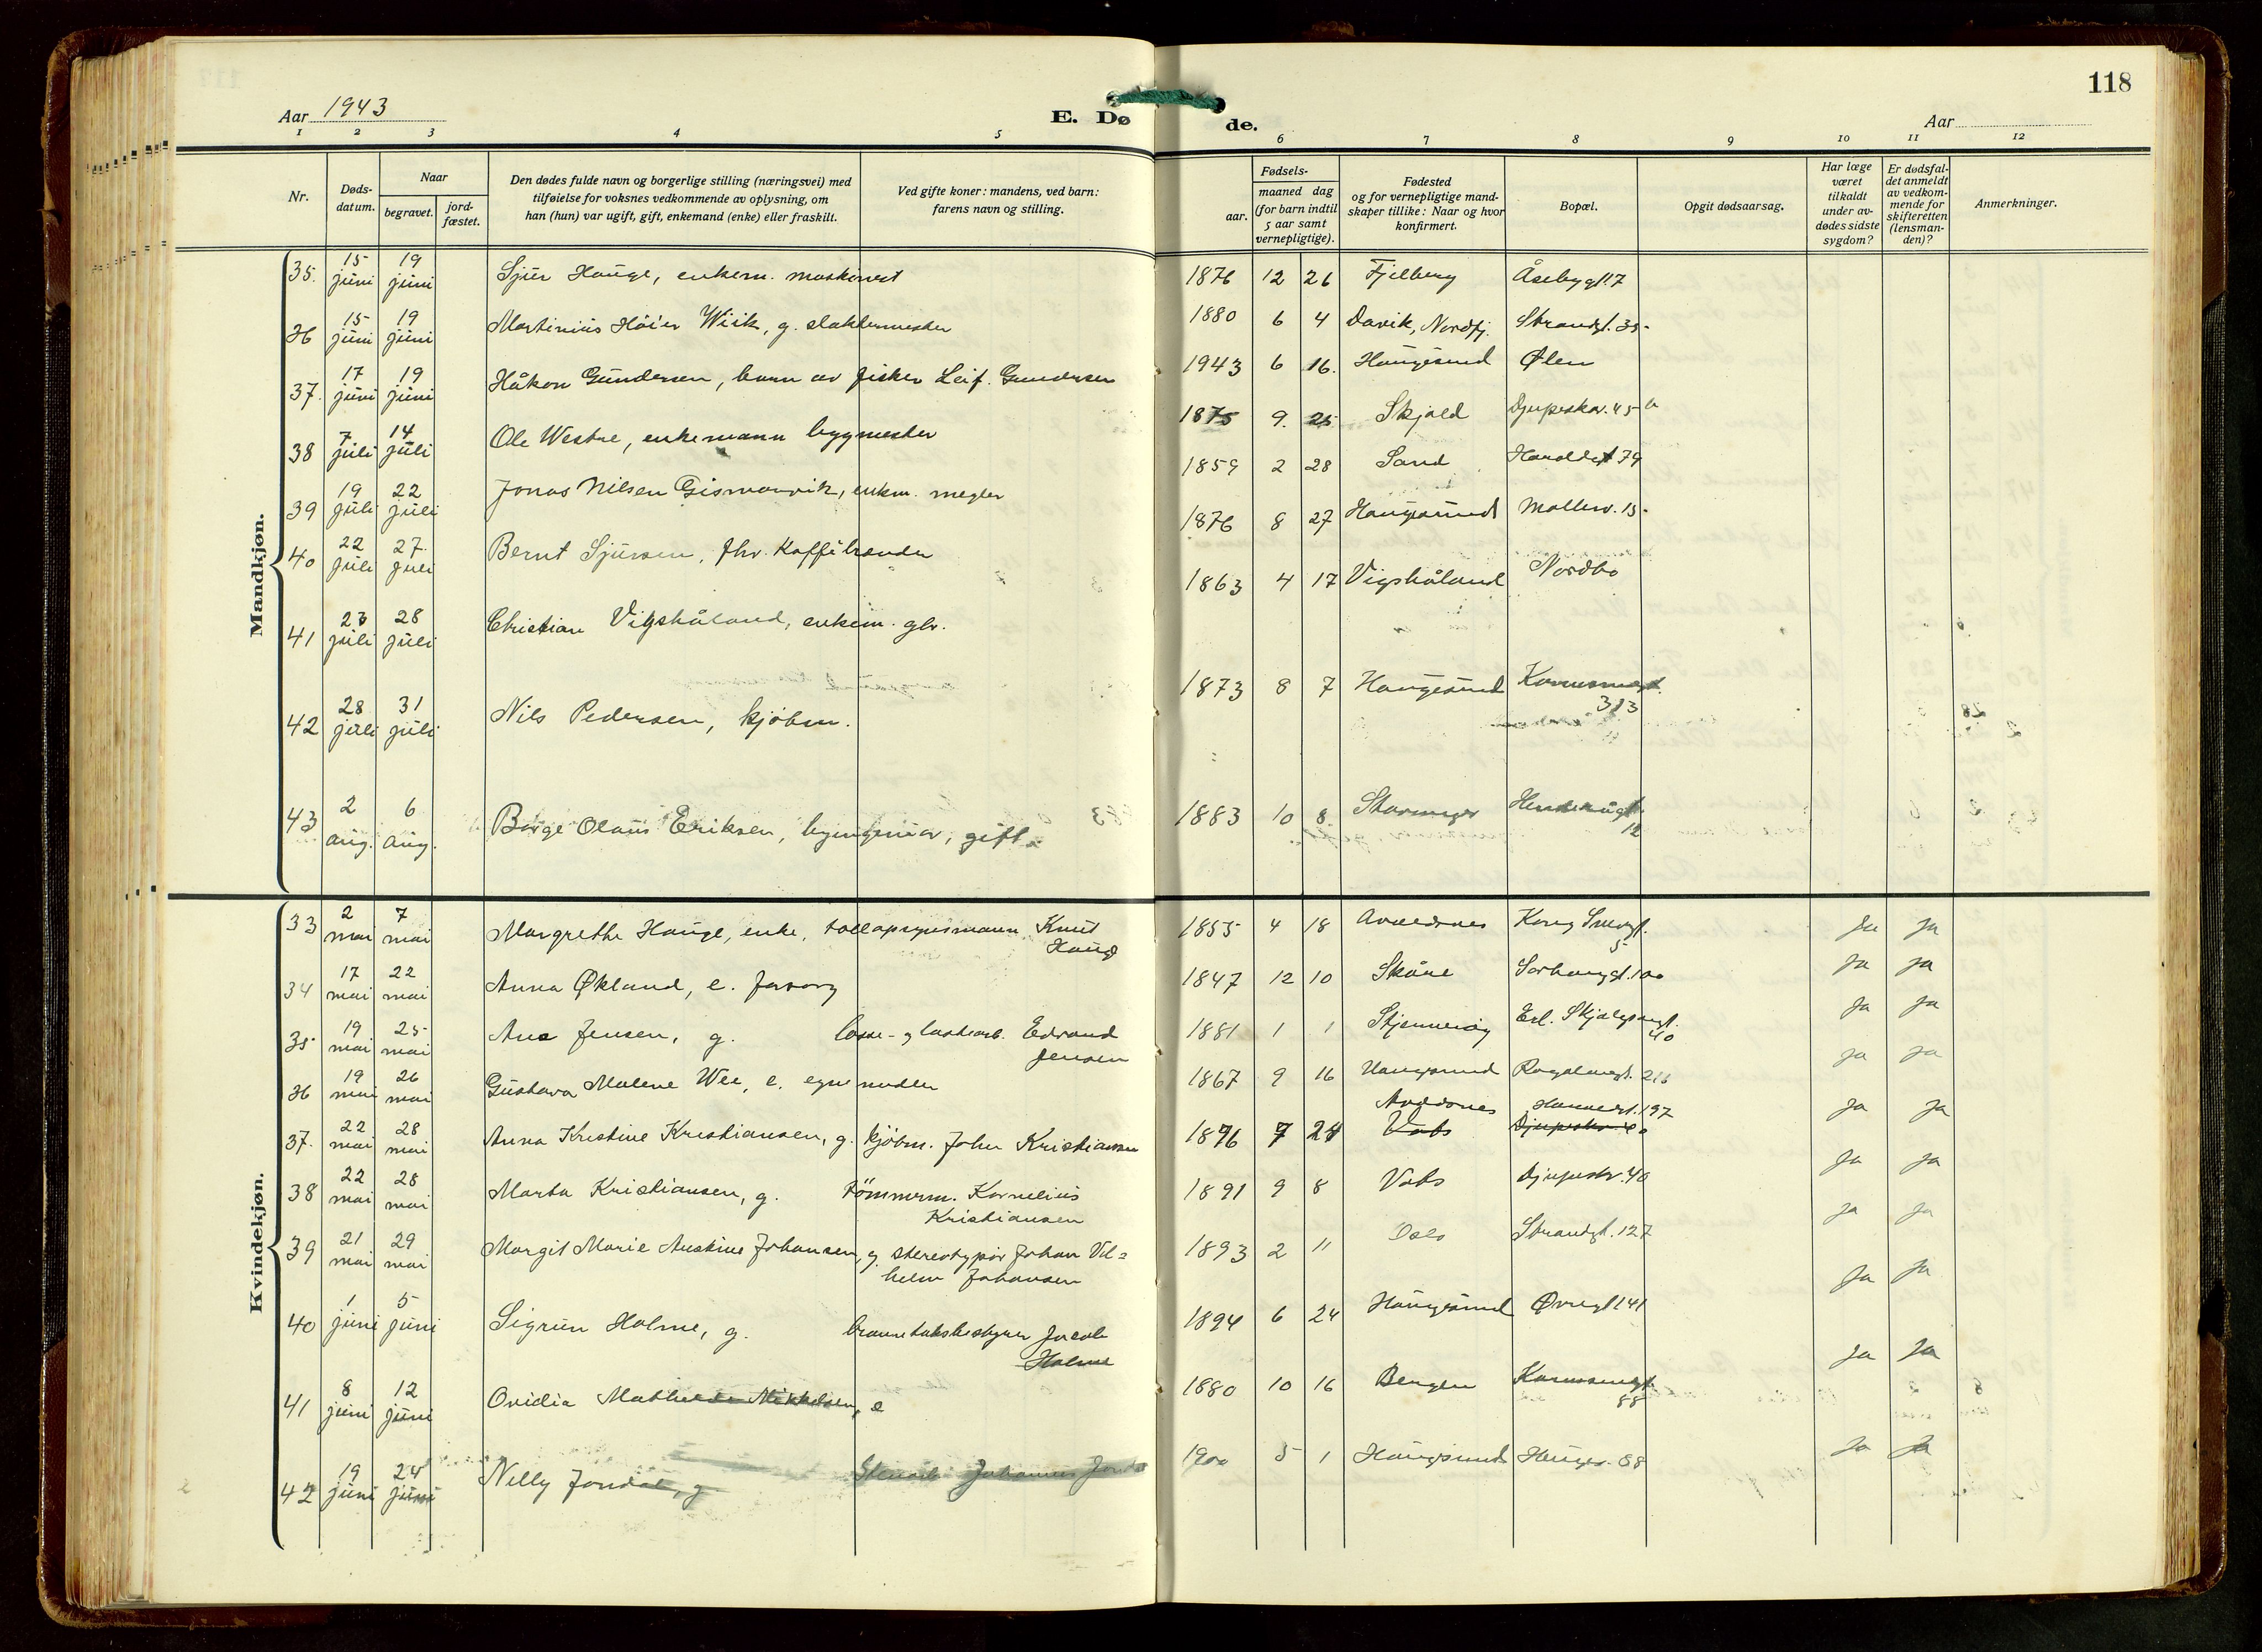 118
Aar 1943
E. Dø
de.
Aar
1 2 3 4 5 6 7 8 9 10 11 12
Nr.
Døds-
datum.
Naar
begravet.
jord-
fæstet.
Den dødes fulde navn og borgerlige stilling (næringsvei) med
tilføielse for voksnes vedkommende av oplysning, om
han (hun) var ugift, gift, enkemand (enke) eller fraskilt.
Ved gifte koner: mandens, ved barn:
farens navn og stilling.
Fødsels-
aar.
maaned dag
(for barn indtil
5 aar samt
vernepligtige).
Fødested
og for vernepligtige mand-
skaper tillike: Naar og hvor
konfirmert.
Bopæl.
Opgit dødsaarsag.
Har læge
været
tilkaldt
under av-
dødes sidste
sygdom?
Er dødsfal-
det anmeldt
av vedkom-
mende for
skifteretten
(lensman-
den)?
Anmerkninger.
Mandkjøn.
35. 15 juni 19 juni Sjur Hauge, enkem. maskinist 1876 12 26 Fjelberg Åsebygt 17
36 15 juni 19 juni Martinius Höier Wiik, g. slaktermester 1880 6 4 Davik, Nordfj. Strandgt. 35
37. 17 juni 19 juni Håkon Gundersen, barn av fisker Leif Gundersen 1943 6 16. Haugesund Ølen
38 7 juli 14 juli Ole Westre, enkemann bygmester 1875 9. 25 Skjold Djupeskar. 45 a
39 19 juli 22 juli Jonas Nilsen Gismarvik, enkm. megler 1859 2 28 Sand Haraldsgt 79
40 22 juli 27. juli Bernt Sjursen, fhv. Kaffebrender 1876 8 27 Haugesund 15
41 23 juli 28 juli Christian Vigshåland, enkem. gbr. 1863 4 17 Vigshåland Nordbø
42 28 juli 31 juli Nils Pedersen, kjöbm. 1873 8 7 Haugesund Karmsundgt.
313
43 2 aug. 6 aug. Börge Olaus Eriksen, byingeniør, gift 1883 10 8. Stavanger
12
Kvindekjøn.
33 2 mai 7 mai Margrethe Hauge, enke, tollopsynsmann Knut
Hauge 1855 4 18 Avaldsnes Kong Sverresgt.
5 Ja Ja
34 17 mai 22 mai Anna Økland, e. forsorg 1847 12 10 Skåne Sörhauggt. 100 Ja Ja
35 19 mai 25 mai Ana Jensen, g. losse- og lastearb. Edvard
Jensen 1881 1 1 Stjernerøy Erl. Skjalgsongt.
40 Ja Ja
36 19 mai 26 mai Gustava Malene Wee, e. egne midler 1867 9 16 Haugesund 216 Ja Ja
37. 22 mai 28 mai Anna Kristine Kristiansen, g. kjöbm. John Kristiansen 1896 7 24 Avaldsnes Vats 197 Djupeskar. 40 Ja Ja
38 22 mai 28 mai Marta Kristiansen, g. tömmerm. Kornelius
Kristiansen 1891 9 8 Vats Djupeskr. 40 Ja Ja
39 21 mai 29 mai Margit Marie Austine Johansen, g. stereotypör Johan Vil=
helm Johansen 1893 2 11 Oslo Strandgt. 127 Ja Ja
40 1 juni 5 juni Sigrun Holme, g. branntakstbestyrer Jacob
Holme 1894 6 24 Haugesund Øvregt 141 Ja Ja
41 8 juni 12 juni Ovidia Mathilde Mikkelsen, e 1880 10 16 Bergen Karmsundgt.
88 Ja Ja
42 19 juni 24 juni Nelly Jondal, g Stenarb. Johannes Jondal 1900 5 1 Haugesund 88 Ja Ja